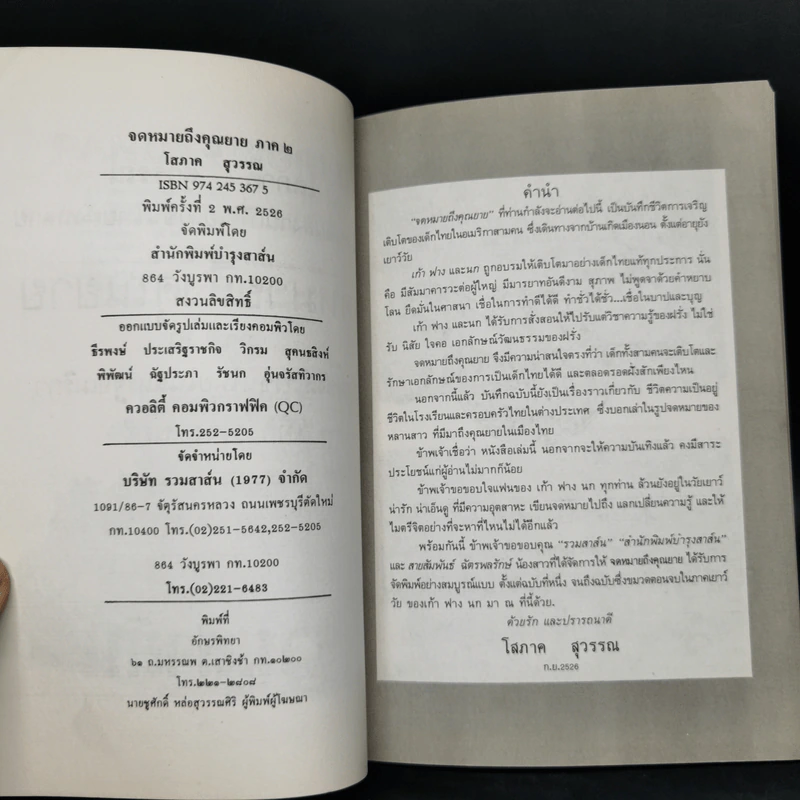 จดหมายถึงคุณยาย ภาค ๒
โสภาค สุวรรณ
ISBN 974 245 367 5
พิมพ์ครั้งที่ 2 พ.ศ. 2526
จัดพิมพ์โดย
สำนักพิมพ์บำรุงสาส์น
864 วังบูรพา กท.10200
สงวนลิขสิทธิ์
ออกแบบจัดรูปเล่มและเรียงคอมพิวโดย
ธีรพงษ์ ประเสริฐราชกิจ วิกรม สุคนธสิงห์
พิพัฒน์ ฉัฐประภา รัชนก อุ่นจรัสทิวากร
ควอลิตี้ คอมพิวกราฟฟิค (QC)
โทร.252-5205
จัดจำหน่ายโดย
บริษัท รวมสาส์น (1977) จำกัด
1091/86-7 จัตุรัสนครหลวง ถนนเพชรบุรีตัดใหม่
กท.10400 โทร.(02)251-5642,252-5205
864 วังบูรพา กท.10200
โทร.(02)221-6483
พิมพ์ที่
อักษรพิทยา
๖๑ ถ.มหรรณพ ต.เสาชิงช้า กท.๑๐๒๐๐
โทร.๒๒๑-๒๘๐๘
นายชูศักดิ์ หล่อสุวรรณศิริ ผู้พิมพ์ผู้โฆษณา
คำนำ
"จดหมายถึงคุณยาย" ที่ท่านกำลังจะอ่านต่อไปนี้ เป็นบันทึกชีวิตการเจริญ
เติบโตของเด็กไทยในอเมริกาสามคน ซึ่งเดินทางจากบ้านเกิดเมืองนอน ตั้งแต่อายุยัง
เยาว์วัย
เก้า ฟาง และนก ถูกอบรมให้เติบโตมาอย่างเด็กไทยแท้ทุกประการ นั่น
คือ มีสัมมาคารวะต่อผู้ใหญ่ มีมารยาทอันดีงาม สุภาพ ไม่พูดจาด้วยคำหยาบ
โลน ยึดมั่นในศาสนา เชื่อในการทำดีได้ดี ทำชั่วได้ชั่ว...เชื่อในบาปและบุญ
เก้า ฟาง และนก ได้รับการสั่งสอนให้ไปรับแต่วิชาความรู้ของฝรั่ง ไม่ใช่
รับ นิสัย ใจคอ เอกลักษณ์วัฒนธรรมของฝรั่ง
จดหมายถึงคุณยาย จึงมีความน่าสนใจตรงที่ว่า เด็กทั้งสามคนจะเติบโตและ
รักษาเอกลักษณ์ของการเป็นเด็กไทยได้ดี และตลอดรอดฝั่งสักเพียงไหน
นอกจากนี้แล้ว บันทึกฉบับนี้ยังเป็นเรื่องราวเกี่ยวกับ ชีวิตความเป็นอยู่
ชีวิตในโรงเรียนและครอบครัวไทยในต่างประเทศ ซึ่งบอกเล่าในรูปจดหมายของ
หลานสาว ที่มีมาถึงคุณยายในเมืองไทย
ข้าพเจ้าเชื่อว่า หนังสือเล่มนี้ นอกจากจะให้ความบันเทิงแล้ว คงมีสาระ
ประโยชน์แก่ผู้อ่านไม่มากก็น้อย
ข้าพเจ้าขอขอบใจแฟนของ เก้า ฟาง นก ทุกท่าน ล้วนยังอยู่ในวัยเยาว์
น่ารัก น่าเอ็นดู ที่มีความอุตสาหะ เขียนจดหมายไปถึง แลกเปลี่ยนความรู้ และให้
ไมตรีจิตอย่างที่จะหาที่ไหนไม่ได้อีกแล้ว
พร้อมกันนี้ ข้าพเจ้าขอขอบคุณ "รวมสาส์น" "สำนักพิมพ์บำรุงสาส์น"
และ สายสัมพันธ์ ฉัตรพลรักษ์ น้องสาวที่ได้จัดการให้ จดหมายถึงคุณยาย ได้รับการ
จัดพิมพ์อย่างสมบูรณ์แบบ ตั้งแต่ฉบับที่หนึ่ง จนถึงฉบับซึ่งขมวดตอนจบในภาคเยาว์
วัย ของเก้า ฟาง นก มา ณ ที่นี้ด้วย.
ด้วยรัก และปรารถนาดี
โสภาค สุวรรณ
ก.ย.2526